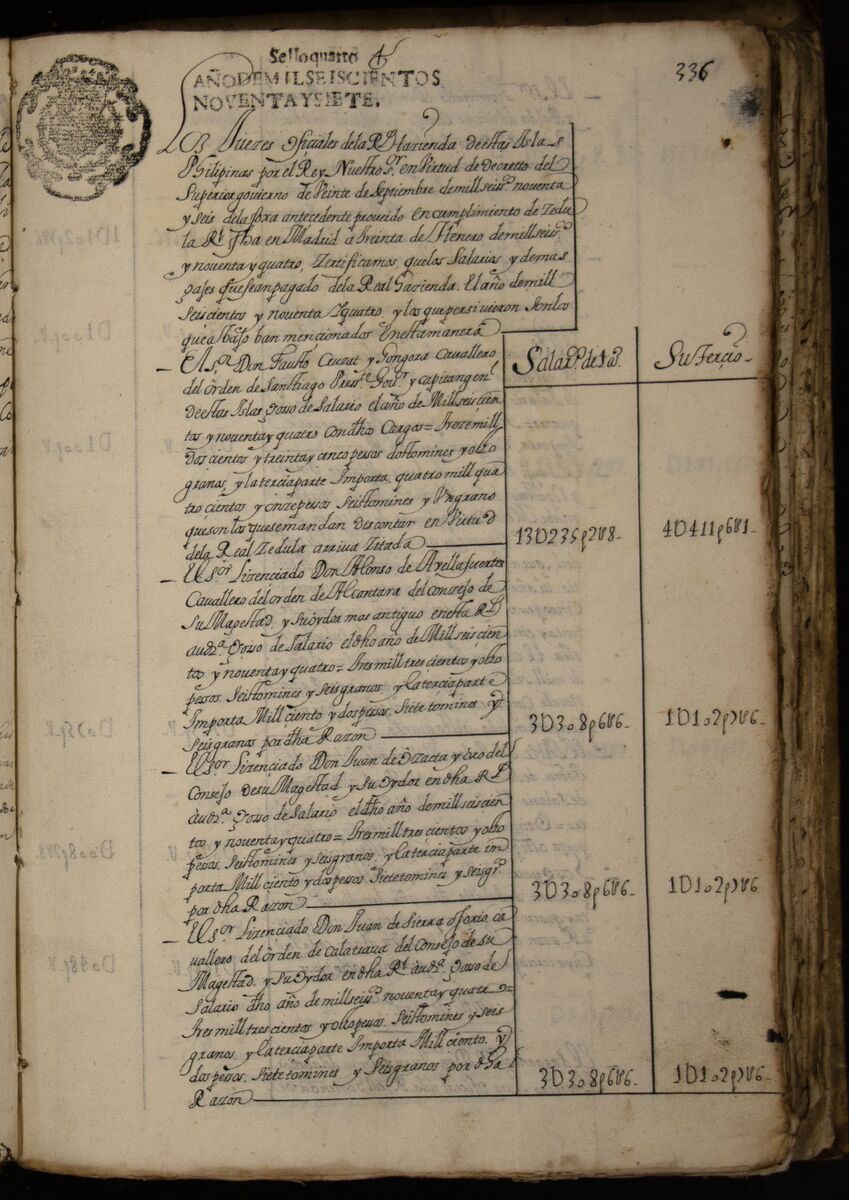 Sello quarto
336
AÑO DE MIL SEISCIENTOS
NOVENTA Y SIETE.
Los Jueses ofiçiales de la Rl hazienda de estas Isla-s
Philipinas por el Rey Nuestro Sr. en Virtud de Decretto del
Superior govierno de Veinte de Septiembre de mill seisº. noventa
y seis de la foxa antecedente proveido en cumplimiento de Zedu
la Rl. fha en Madrid â treinta de Henero de mill seisº.
y noventa y quatro, Zertificamos, que los Salarios, y demas
pajes que se an pagado de la Real Hazienda. El año de mill
seiscientos y noventa y quatro, y los que persivieron son los
que abajo ban mencionados En esta manera
Salarº. de 1 aº.
Su terçio-
El Sr. Don Fausto Cruzat y Gongora Cavallero
del Orden de Santhiago Presste. Govr. y capitan genl.
de estas Islas goso de Salario el año de Mill seis cien
tos y noventa y quatro con dhos Cargos = treze mill
dos cientos y treinta y cinco pesos dos tomines y ocho
granos, y la tercia parte Importa, quatro mill qua
tro cientos y onze pessos seis tomines y Un grano
que son los que se mandan descontar en Virtud
de la Real Zedula arriva Zitada
13D235p2t8-
4D411p6t1-
El Sor Lizenciado Don Alonso de Avella fuertes
Cavallero del orden de Alcantara del consejo de
Su Magestad, y Su oydor mas antiguo en esta Rl.
audª. Goso de Salario el dho año de Mill seis çien
tos y noventa y quatro = tres mill tres cientos y ocho
pessos. Seis tomines y seis granos, y la tercia parte
Importa Mill ciento y dos pessos. Siete tomines y
Seis granos por dha Razon
3D3o8p6t6-
1D1o2p7t6-
El Sor Lizençiado Don Juan de Ozaeta y Oro del
Consejo de su Magestad y su Oydor en dha Rl.
audª. Goso de Salario el dho año de mill seis cien
tos y noventa y quatro = tres mill tres cientos y ocho
pessos. Seis tomines y seis granos, y la tercia parte im
porta Mill çiento y dos pessos. Siete tomines y seis grs.
por dha Razon
3D3o8p6t6-
1D1o2p7t6
El Sor Lizenciado Don Juan de Sierra ossorio ca
vallero del Orden de calatrava del Consejo de su
Magestad, y su Oydor en dha Rl. audª. Goso de
Salario dho año de mill seisº. noventa y quatro =
tres mill tres cientos y ocho pessos. Seis tomines y seis
granos, y la tercia parte Importa Mill ciento. y
dos pessos. Siete tomines y Seis granos por dha
Razon
3D3o8p6t6-
1D1o2p7t6-